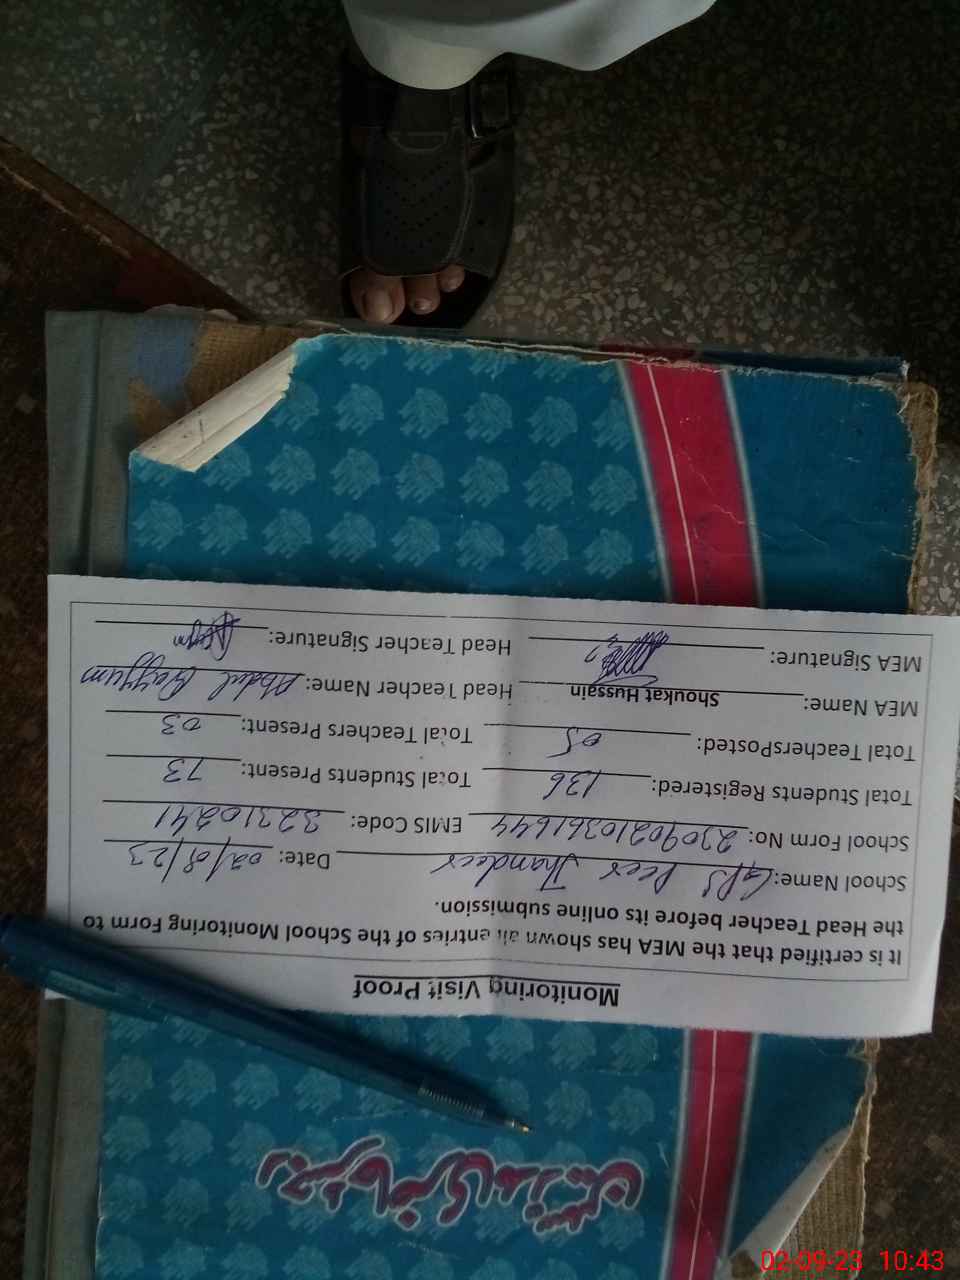 Monitoring Visit Proof
It is certified that the MEA has shown all entries of the School Monitoring Form to
the Head Teacher before its online submission.
School Name: GPS Peer Jhandeer Date: 02/9/23
School Form No: 23090210361644 EMIS Code: 32310241
Total Students Registered: 136 Total Students Present: 73
Total TeachersPosted: 05 Total Teachers Present: 03
MEA Name: Shoukat Hussain Head Teacher Name: Abdul Qayyum
MEA Signature: Head Teacher Signature:
رجسٹر حاضری مدرسین
02-09-23 10:43